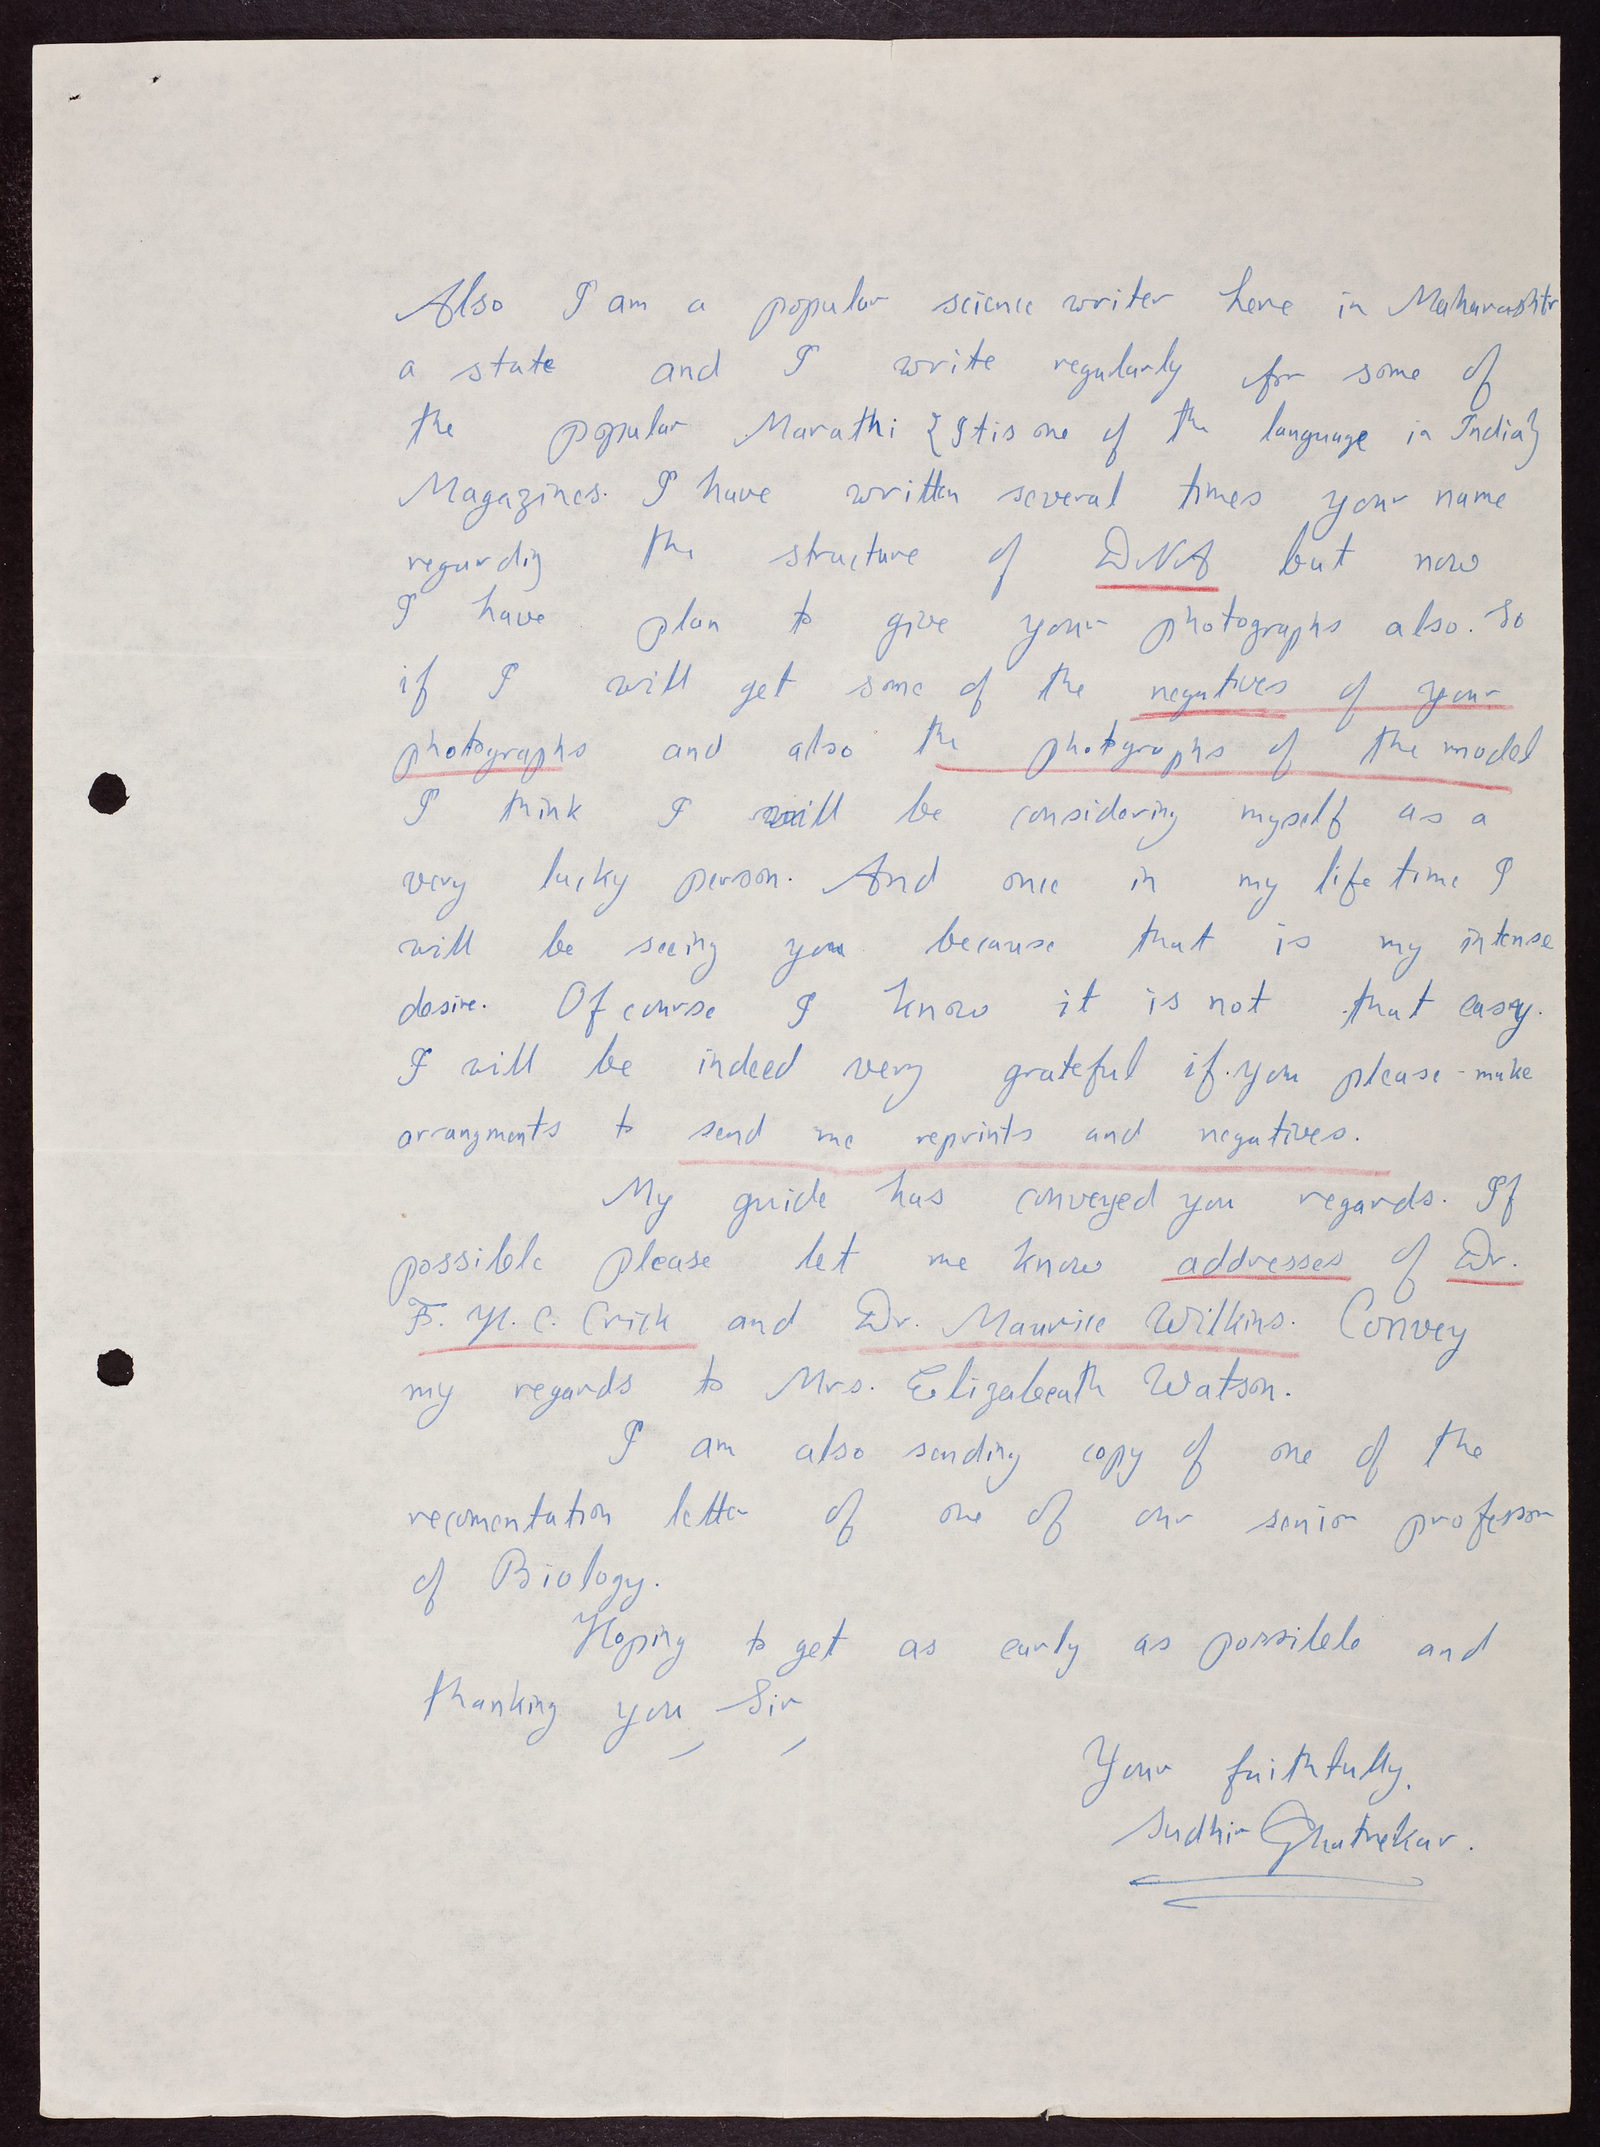 Also I am a popular science writer here in Maharashtr
a state and I write regularly for some of
the popular Marathi {It is one of the language in India}
Magazines. I have written several times your name
regarding the structure of DNA but now
I have plan to give your photographs also. So
if I will get some of the negatives of your
photographs and also the photographs of the model
I think I will be considering myself as a
very lucky person. And once in my life time I
will be seeing you because that is my intense
desire. Of course I know it is not that easy.
I will be indeed very grateful if you please make
arrangments to send me reprints and negatives.
My guide has conveyed you regards. If
possible please let me know addresses of Dr.
F. H. C. Crick and Dr. Maurice Wilkins. Convey
my regards to Mrs. Elizabeath Watson.
I am also sending copy of one of the
recomentation letter of one of our senior professor
of Biology.
Hoping to get as early as possible and
thanking you Sir
Your faithfully,
Sudhir Ghatnekar.